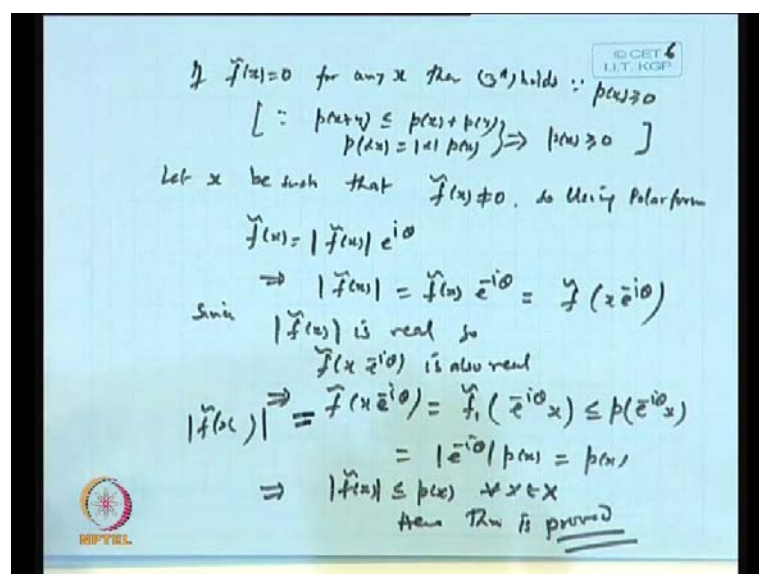 © CET 6
I.I.T. KGP
If f̃(x)=0 for any x then (3*) holds ∵ p(x)≥0
[ ∵ p(x+y) ≤ p(x)+p(y)
p(αx) = |α| p(x) } ⇒ p(x) ≥ 0 ]
Let x be such that f̃(x)≠0. So Using Polar form
f̃(x) = |f̃(x)| e^{iθ}
⇒ |f̃(x)| = f̃(x) e^{-iθ} = f̃(x e^{-iθ})
Since |f̃(x)| is real so
f̃(x e^{-iθ}) is also real
⇒
|f̃(x)| = f̃(x e^{-iθ}) = f̃₁(e^{-iθ} x) ≤ p(e^{-iθ} x)
= |e^{-iθ}| p(x) = p(x)
⇒ |f̃(x)| ≤ p(x) ∀ x ∈ X
Hence Thm is proved
NPTEL